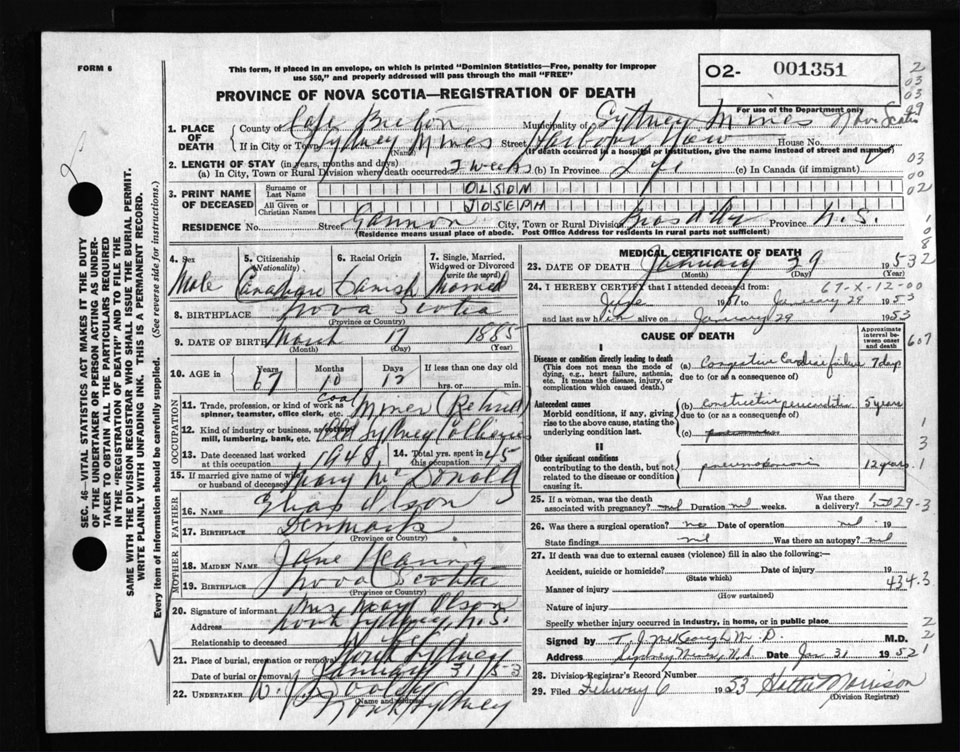 FORM 6
This form, if placed in an envelope, on which is printed "Dominion Statistics—Free, penalty for improper
use $50," and properly addressed will pass through the mail "FREE"
PROVINCE OF NOVA SCOTIA—REGISTRATION OF DEATH
O2- 001351
For use in the Department only
1. PLACE OF DEATH
County of Cape Breton Municipality of Sydney Mines Nova Scotia
If in City or Town Sydney Mines Street Harbor View House No.
(Name) (If death occurred in a hospital or institution, give the name instead of street and number)
2. LENGTH OF STAY (in years, months and days)
(a) In City, Town or Rural Division where death occurred 2 weeks (b) In Province (c) In Canada (if immigrant)
3. PRINT NAME OF DECEASED
Surname or Last Name OLSON
All Given or Christian Names JOSEPH
RESIDENCE No. Street Gannon City, Town or Rural Division Province N.S.
(Residence means usual place of abode. Post Office Address for residents in rural parts not sufficient)
SEC. 46—VITAL STATISTICS ACT MAKES IT THE DUTY
OF THE UNDERTAKER OR PERSON ACTING AS UNDER-
TAKER TO OBTAIN ALL THE PARTICULARS REQUIRED
IN THE "REGISTRATION OF DEATH" AND TO FILE THE
SAME WITH THE DIVISION REGISTRAR WHO SHALL ISSUE THE BURIAL PERMIT.
WRITE PLAINLY WITH UNFADING INK. THIS IS A PERMANENT RECORD.
Every item of information should be carefully supplied. (See reverse side for instructions.)
4. Sex
Male
5. Citizenship (Nationality)
Canadian
6. Racial Origin
Danish
7. Single, Married, Widowed or Divorced (write the word)
Married
8. BIRTHPLACE Nova Scotia
(Province or Country)
9. DATE OF BIRTH March 17 1885
(Month) (Day) (Year)
10. AGE in Years 67 Months 10 Days 12 If less than one day old
hrs. or min.
OCCUPATION
11. Trade, profession, or kind of work as spinner, teamster, office clerk, etc. Coal Miner (Retired)
12. Kind of industry or business, as mill, lumbering, bank, etc. Old Sydney Collieries
13. Date deceased last worked at this occupation 1948
14. Total yrs. spent in this occupation 45
15. If married give name of wife or husband of deceased Mary McDonald
FATHER
16. NAME Elias Olson
17. BIRTHPLACE Denmark
(Province or Country)
MOTHER
18. MAIDEN NAME Jane
19. BIRTHPLACE Nova Scotia
(Province or Country)
20. Signature of informant Mrs Mary Olson
Address North Sydney, N.S.
Relationship to deceased Wife
21. Place of burial, cremation or removal North Sydney
Date of burial or removal January 31/53
22. UNDERTAKER W. J. Dooley
(Name and address)
North Sydney
MEDICAL CERTIFICATE OF DEATH
23. DATE OF DEATH January 29 1953
(Month) (Day) (Year)
24. I HEREBY CERTIFY that I attended deceased from: 67-X-12-00
1951 to January 29 1953
and last saw him alive on January 29 1953
CAUSE OF DEATH
Approximate interval between onset and death
I
Disease or condition directly leading to death
(This does not mean the mode of dying, e.g., heart failure, asthenia, etc. It means the disease, injury, or complication which caused death.)
(a) Congestive Cardiac failure 7 days
due to (or as a consequence of)
Antecedent causes
Morbid conditions, if any, giving rise to the above cause, stating the underlying condition last.
(b) Constrictive pericarditis 5 years
due to (or as a consequence of)
(c)
II
Other significant conditions
contributing to the death, but not related to the disease or condition causing it.
pneumokoniosis 12 years
25. If a woman, was the death associated with pregnancy? nil Duration nil weeks. Was there a delivery?
26. Was there a surgical operation? no Date of operation nil 19
State findings nil Was there an autopsy? nil
27. If death was due to external causes (violence) fill in also the following:—
Accident, suicide or homicide? Date of injury 19
(State which)
Manner of injury 434.3
(How sustained)
Nature of injury
Specify whether injury occurred in industry, in home, or in public place
Signed by T. J. McKeough M.D. M.D.
Address Sydney Mines, N.S. Date Jan 31 1952
28. Division Registrar's Record Number
29. Filed February 6 1953 Hattie Morrison
(Division Registrar)